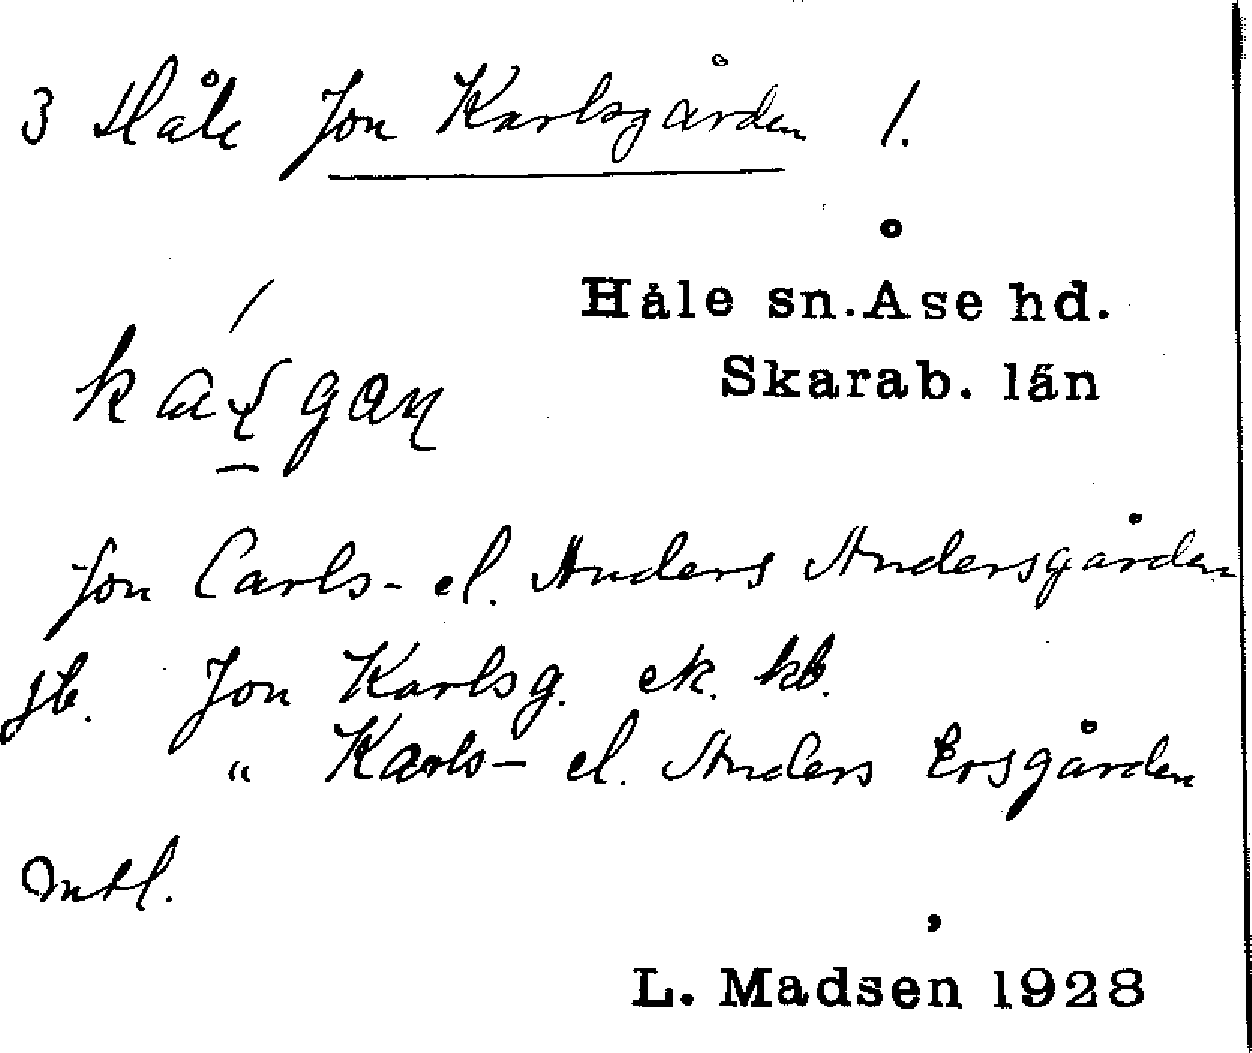 3 Håle Jon Karlsgården 1.
Håle sn. Åse hd.
Skarab. län
Jon Carls- el. Anders Andersgården
jb. Jon Karlsg. ek. kb.
" Karls- el. Anders Ersgården
mtl.
L. Madsen 1928